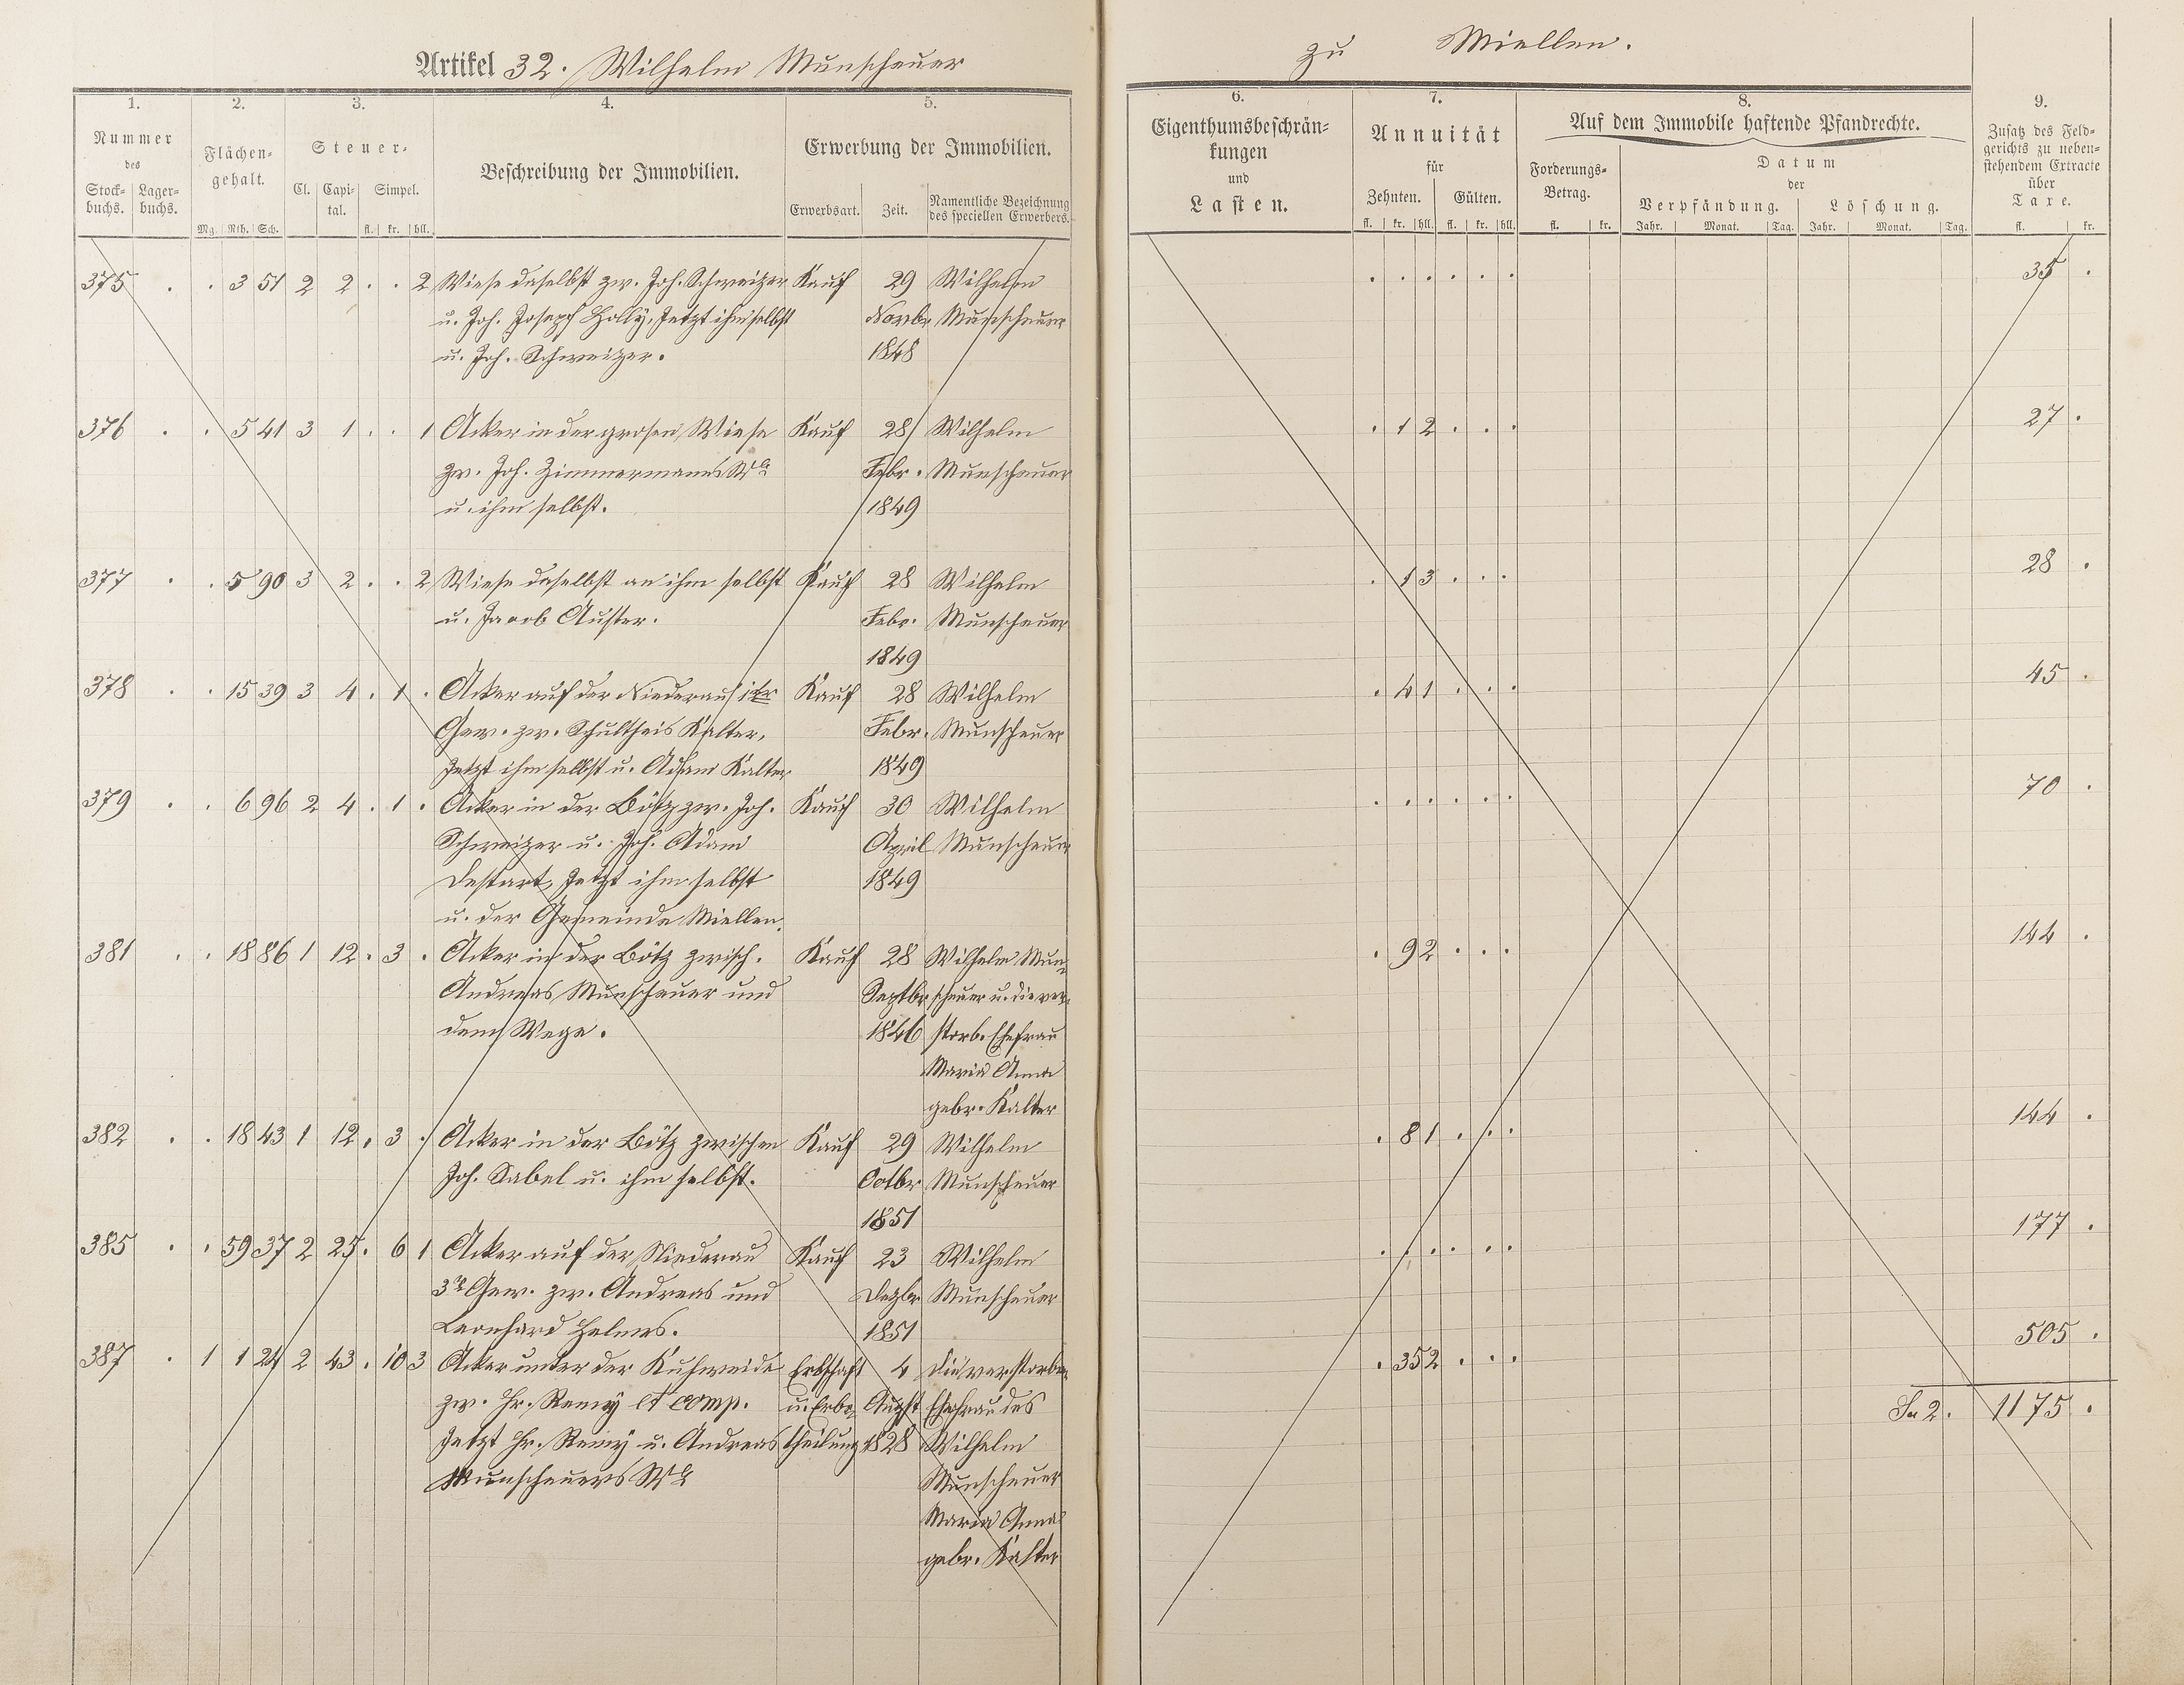 Artikel 32. Wilhelm Munscheuer
zu Miellen.
1. 2. 3. 4. 5. 6. 7. 8. 9.
Nummer des
Stock- buchs. Lager- buchs.
Flächen- gehalt.
Mg. Rth. Sch.
Steuer-
Cl. Capi- tal. Simpel.
fl. kr. hll.
Beschreibung der Immobilien.
Erwerbung der Immobilien.
Erwerbsart. Zeit. Namentliche Bezeichnung des speciellen Erwerbers.
Eigenthumsbeschrän- kungen und Lasten.
Annuität für
Zehnten. Gülten.
fl. kr. hll. fl. kr. hll.
Auf dem Immobile haftende Pfandrechte.
Forderungs- Betrag.
fl. kr.
Datum der
Verpfändung. Löschung.
Jahr. Monat. Tag. Jahr. Monat. Tag.
Zusatz des Feld- gerichts zu neben- stehendem Extracte über Taxe.
fl. kr.
375 . . 3 51 2 2 . . 2 Wiese daselbst zw. Joh. Schweitzer Kauf 29 Wilhelm . . . . . . 35 .
u. Joh. Joseph Holly, Jetzt ihm selbst Novbr Munscheuer
u. Joh. Schweizer. 1848
376 . . 5 41 3 1 . . 1 Acker in der grosen Wiese Kauf 28 Wilhelm . 1 2 . . . 27 .
zw. Joh. Zimmermanns Wb Febr. Munscheuer
u. ihm selbst. 1849
377 . . 5 90 3 2 . . 2 Wiese daselbst an ihm selbst Kauf 28 Wilhelm . 1 3 . . . 28 .
u. Jacob Auster. Febr. Munscheuer
1849
378 . . 15 39 3 4 . 1 . Acker auf der Niederau 1tr Kauf 28 Wilhelm . 4 1 . . . 45 .
Gew. zw. Schultheis Kalter, Febr. Munscheuer
Jetzt ihm selbst u. Adam Kalter 1849
379 . . 6 96 2 4 . 1 . Acker in der Bötz zw. Joh. Kauf 30 Wilhelm . . . . . . 70 .
Schweizer u. Joh. Adam April Munscheuer
Destart, Jetzt ihm selbst 1849
u. der Gemeinde Miellen.
381 . . 18 86 1 12 . 3 . Acker in der Bötz zwisch. Kauf 28 Wilhelm Mun- . 9 2 . . . 144 .
Andreas Munscheuer und Septbr scheuer u. die ver-
dem Wege. 1846 storb. Ehefrau
Maria Anna
gebr. Kalter
382 . . 18 43 1 12 . 3 . Acker in der Bötz zwischen Kauf 29 Wilhelm . 8 1 . . . 144 .
Joh. Sabel u. ihm selbst. Octbr Munscheuer
1851
385 . . 59 37 2 25 . 6 1 Acker auf der Niederau Kauf 23 Wilhelm . . . . . . 177 .
3te Gew. zw. Andreas und Dezbr Munscheuer
Leonhard Helmes. 1851
387 . 1 1 24 2 43 . 10 3 Acker unter der Kuhweide Erbschaft 4 die verstorbene . 35 2 . . . 505 .
zw. Hr. Remy et comp. u. Erb- Augst Ehefrau des Sa 2. 1175 .
Jetzt Hr. Remy u. Andreas theilung 1828 Wilhelm
Munscheuers Wb Munscheuer
Maria Anna
gebr. Kalter